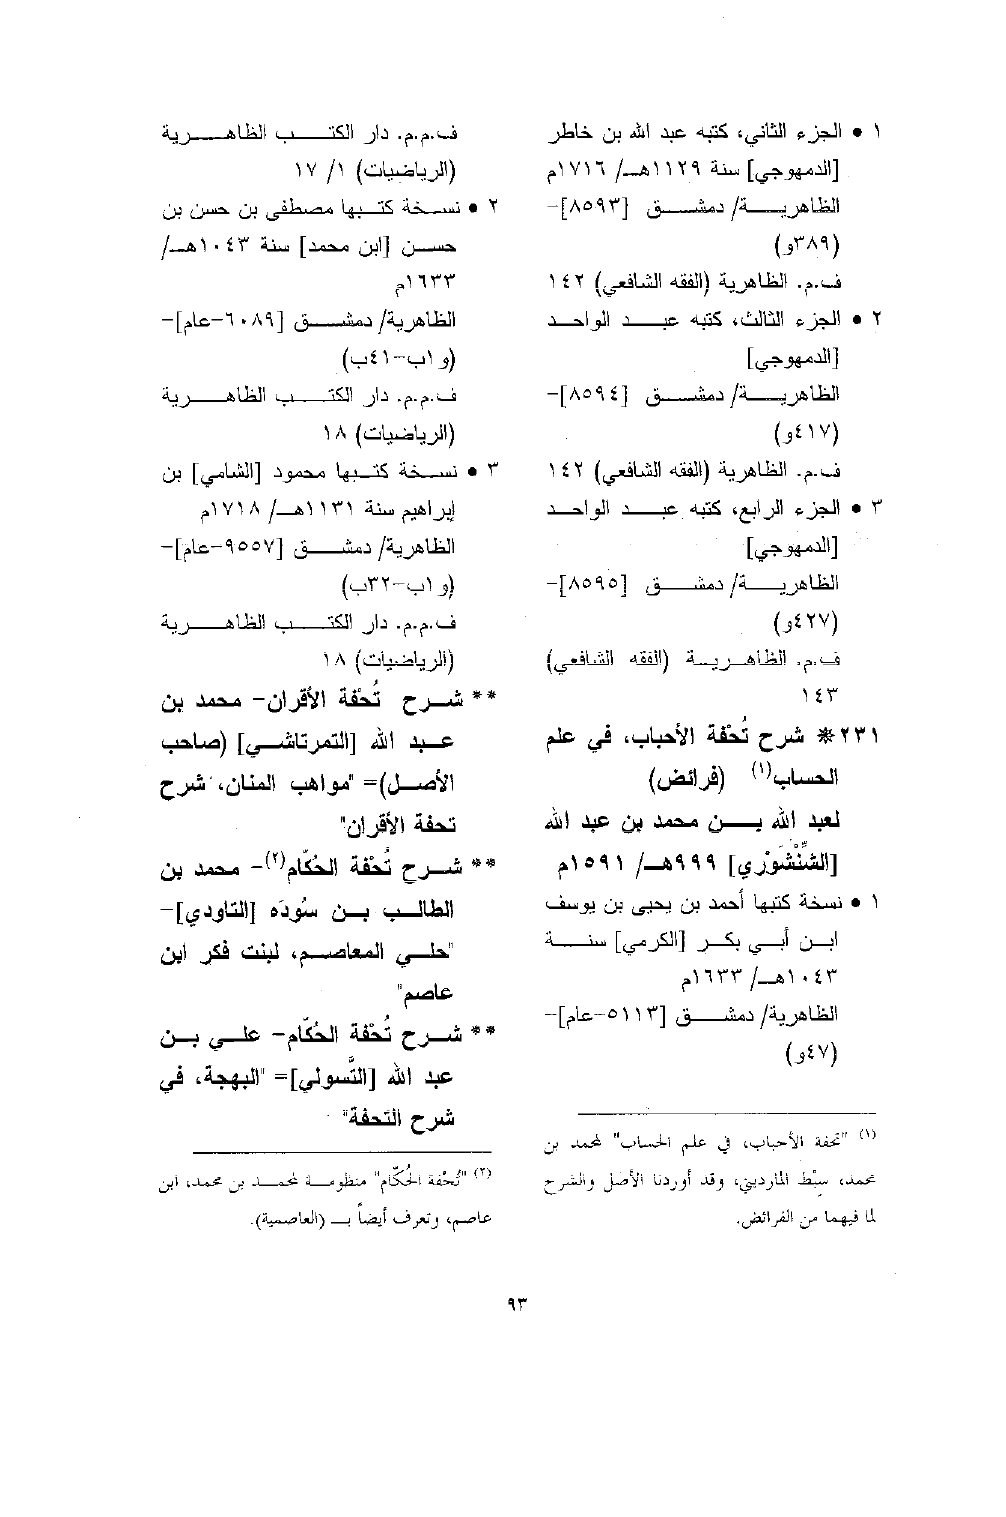 ١ • الجزء الثاني، كتبه عبد الله بن خاطر
[الدمهوجي] سنة ١١٢٩هـ/ ١٧١٦م
الظاهرية/ دمشق [٨٥٩٣]-
(٣٨٩و)
ف.م. الظاهرية (الفقه الشافعي) ١٤٢
٢ • الجزء الثالث، كتبه عبد الواحد
[الدمهوجي]
الظاهرية/ دمشق [٨٥٩٤]-
(٤١٧و)
ف.م. الظاهرية (الفقه الشافعي) ١٤٢
٣ • الجزء الرابع، كتبه عبد الواحد
[الدمهوجي]
الظاهرية/ دمشق [٨٥٩٥]-
(٤٢٧و)
ف.م. الظاهرية (الفقه الشافعي)
١٤٣
٢٣١* شرح تُحْفة الأحباب، في علم
الحساب(١) (فرائض)
لعبد الله بن محمد بن عبد الله
[الشِّنْشَوْري] ٩٩٩هـ/ ١٥٩١م
١ • نسخة كتبها أحمد بن يحيى بن يوسف
ابن أبي بكر [الكرمي] سنة
١٠٤٣هـ/ ١٦٣٣م
الظاهرية/ دمشق [٥١١٣-عام]-
(٤٧و)
(١) "تحفة الأحباب، في علم الحساب" لمحمد بن
محمد، سِبْط المارديني، وقد أوردنا الأصل والشرح
لما فيهما من الفرائض.
ف.م.م. دار الكتب الظاهرية
(الرياضيات) ١/ ١٧
٢ • نسخة كتبها مصطفى بن حسن بن
حسن [ابن محمد] سنة ١٠٤٣هـ/
١٦٣٣م
الظاهرية/ دمشق [٦٠٨٩-عام]-
(و١ب-٤١ب)
ف.م.م. دار الكتب الظاهرية
(الرياضيات) ١٨
٣ • نسخة كتبها محمود [الشامي] بن
إبراهيم سنة ١١٣١هـ/ ١٧١٨م
الظاهرية/ دمشق [٩٥٥٧-عام]-
(و١ب-٣٢ب)
ف.م.م. دار الكتب الظاهرية
(الرياضيات) ١٨
** شرح تُحْفة الأقران- محمد بن
عبد الله [التمرتاشي] (صاحب
الأصل)= "مواهب المنان، شرح
تحفة الأقران"
** شرح تُحْفة الحُكّام(٢)- محمد بن
الطالب بن سُودَه [التاودي]-
"حلي المعاصم، لبنت فكر ابن
عاصم"
** شرح تُحْفة الحُكّام- علي بن
عبد الله [التَّسولي]= "البهجة، في
شرح التحفة"
(٢) "تُحْفة الحُكّام" منظومة لمحمد بن محمد، ابن
عاصم، وتعرف أيضاً بـ (العاصمية).
٩٣